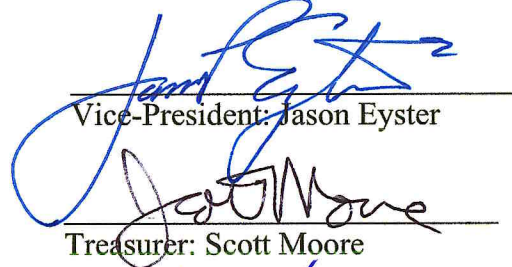 Jason Eyster
Vice-President: Jason Eyster
Scott Moore
Treasurer: Scott Moore